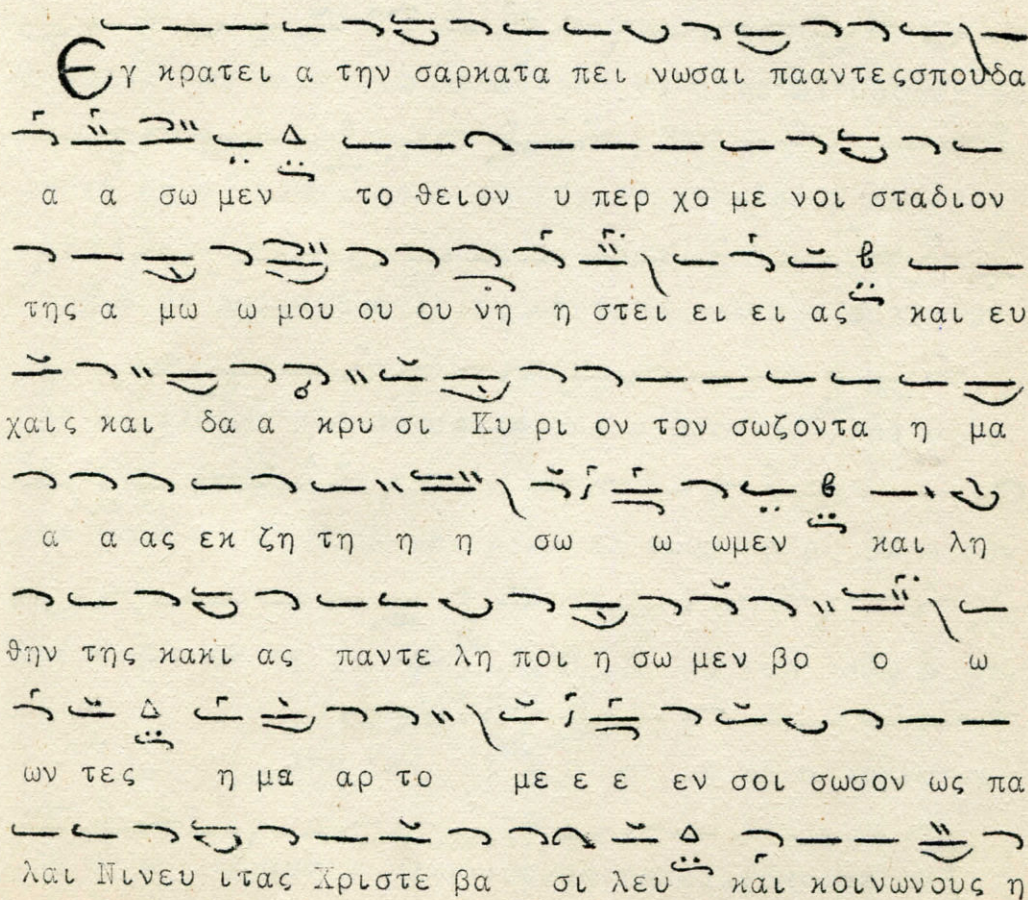 Εγ κρατει α την σαρκατα πει νωσαι πααντεςσπουδα
α α σω μεν το θειον υ περ χο με νοι σταδιον
της α μω ω μου ου ου νη η στει ει ει ας και ευ
χαις και δα α κρυ σι Κυ ρι ον τον σωζοντα η μα
α α ας εκ ζη τη η η σω ω ωμεν και λη
θην της κακι ας παντε λη ποι η σω μεν βο ο ω
ων τες η μα αρ το με ε ε εν σοι σωσον ως πα
λαι Νινευ ιτας Χριστε βα σι λευ και κοινωνους η